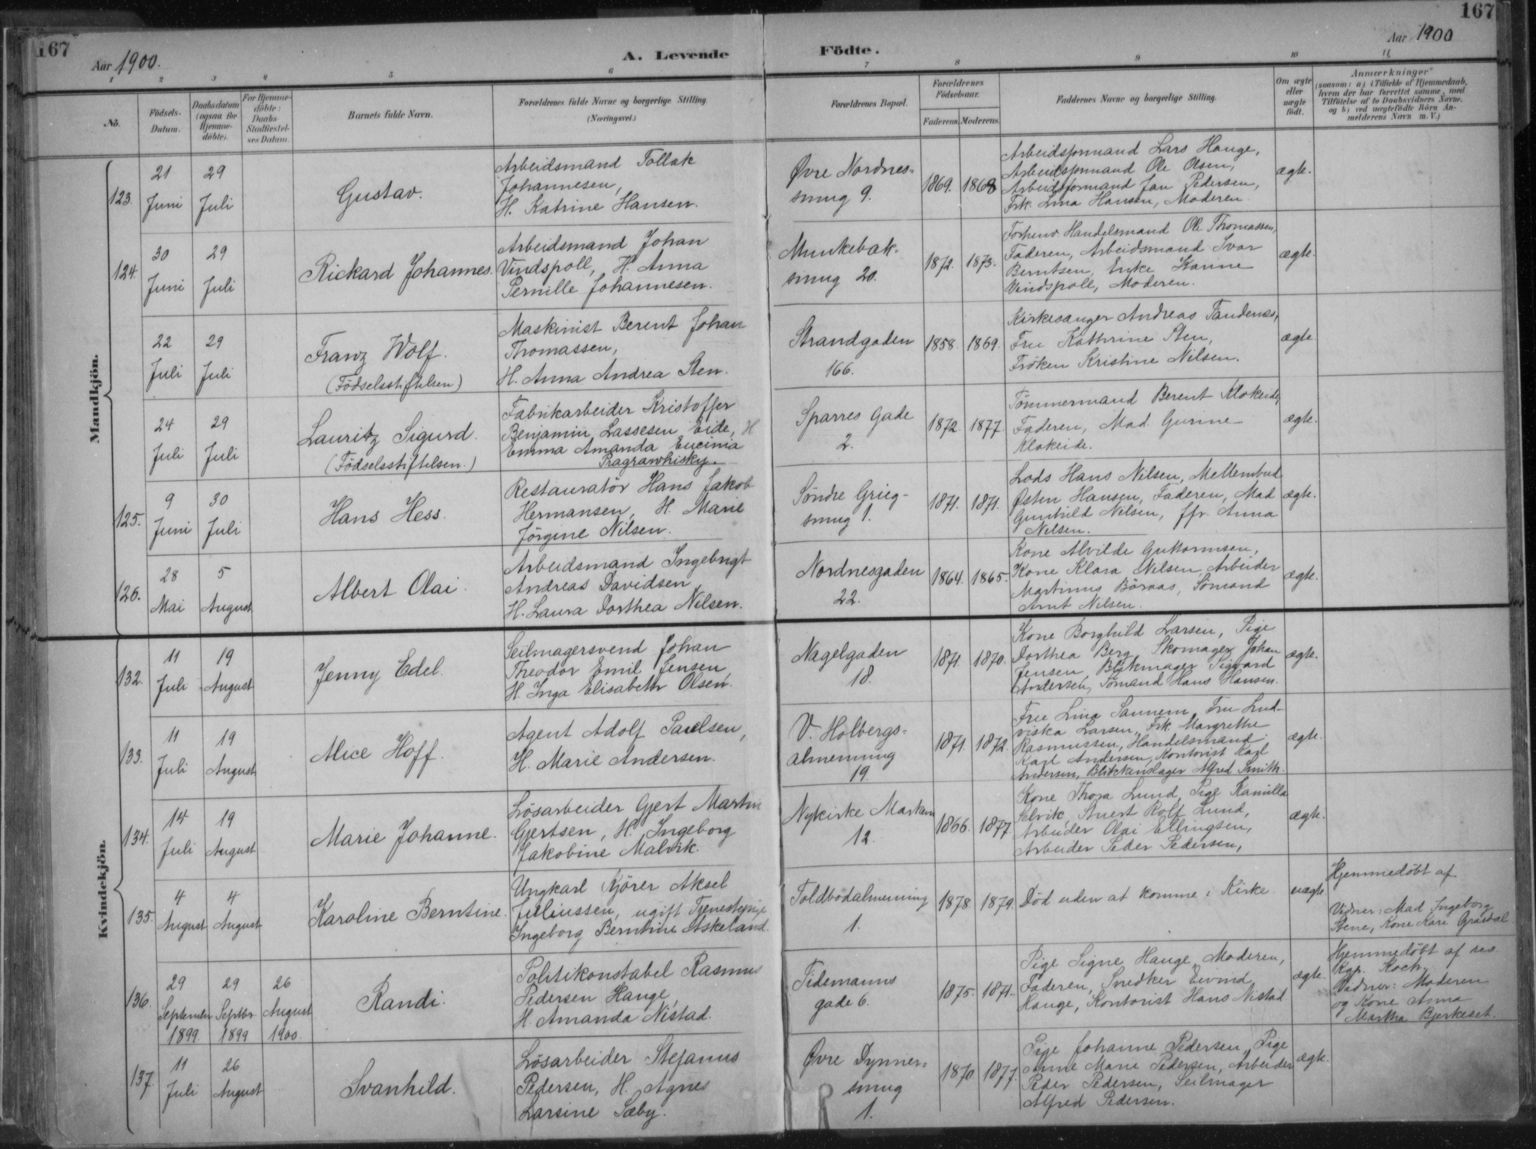 167
Aar 1900.
A. Levende
Födte.
Aar 1900
167
1 2 3 4 5 6 7 8 9 10 11
No.
Födsels-
Datum.
Daabsdatum
(ogsaa for
Hjemme-
döbte).
For Hjemme-
döbte:
Daabs
Stadfæstel-
ses Datum.
Barnets fulde Navn.
Forældrenes fulde Navne og borgerlige Stilling.
(Næringsvei.)
Forældrenes Bopæl.
Forældrenes
Födselsaar.
Faderens. Moderens.
Faddernes Navne og borgerlige Stilling.
Om ægte
eller
uægte
födt.
Anmærkninger
(saasom: a) i Tilfælde af Hjemmedaab,
hvem der har forrettet samme, med
Tilföielse af to Daabsvidners Navne.
og b) ved uægtefödte Börn An-
melderens Navn m. V.)
Mandkjön.
123.
21
Juni
29
Juli
Gustav.
Arbeidsmand Tollak
Johannesen,
H. Katrine Hansen.
Øvre Nordnes-
smug 9.
1869. 1868
Arbeidsformand Lars Hauge,
Arbeidsformand Ole Olsen,
Arbeidsformand Jan Pedersen,
Frk. Lina Hansen, Moderen.
ægte.
124.
30
Juni
29
Juli
Rickard Johannes.
Arbeidsmand Johan
Vindspoll, H. Anna
Pernille Johannesen.
Munkebæk-
smug 20.
1872. 1873.
Forhenv. Handelsmand Ole Thomassen,
Faderen, Arbeidsmand Ivar
Berntsen, Enke Karine
Vindspoll, Moderen.
ægte.
22
Juli
29
Juli
Franz Wolf.
(Födselsstiftelsen)
Maskinist Berent Johan
Thomassen,
H. Anna Andrea Sten.
Strandgaden
166.
1858 1869
Kirkesanger Andreas Tandenes,
Fru Kathrine Sten,
Fröken Kristine Nilsen.
ægte.
24
Juli
29
Juli
Lauritz Sigurd.
(Födselsstiftelsen.)
Fabrikarbeider Kristoffer
Benjamin Lassesen Eide, H
Emma Amanda Eucinia
Pragrawhisky.
Sparres Gade
2.
1872 1877
Tömmermand Berent Klokeide,
Faderen, Mad Gurine
Klokeide.
ægte.
125.
9
Juni
30
Juli
Hans Hess.
Restauratör Hans Jakob
Hermansen, H Marie
Jörgine Nilsen.
Söndre Grieg-
smug 1.
1871. 1871.
Lods Hans Nilsen,
Østen Hansen, Faderen, Mad
Gunhild Nilsen, Anna
Nilsen.
ægte.
126.
28
Mai
5
August
Albert Olai.
Arbeidsmand Ingebrigt
Andreas Davidsen
H. Laura Dorthea Nilsen.
Nordnesgaden
22.
1864. 1865.
Kone Alvilde Guttormsen,
Kone Klara Nilsen, Arbeider
Martinus Böraas, Sömand
Arnt Nilsen.
ægte.
Kvindekjön.
132.
11
Juli
19
August
Jenny Edel.
Seilmagersvend Johan
Theodor Emil Jensen
H. Inga Elisabeth Olsen.
Nagelgaden
18.
1871 1870.
Kone Borghild Larsen, Pige
Dorthea Berg, Skomager Johan
Jensen, Blikmager Sigvard
Andersen, Sömand Hans Hansen.
ægte.
133.
11
Juli
19
August
Alice Hoff.
Agent Adolf Paulsen,
H. Marie Andersen.
V. Holbergs-
almenning
19
1871. 1872
Frue Lina Sannem, Fru Lud-
viska Larsen, Frk. Margrethe
Rasmussen, Handelsmand
Karl Andersen, Kontorist Karl
Andersen, Blikkenslager Alfred Smith.
ægte.
134.
14
Juli
19
August
Marie Johanne.
Lösarbeider Gjert Martin
Gjertsen, H. Ingeborg
Jakobine Malvik.
Nykirke Marken
12.
1866. 1877
Kone Thora Lund, Pige Kamilla
Rolf Lund,
Arbeider Olai Ellingsen,
Arbeider Peder Pedersen,
ægte.
135.
4
August
4
August
Karoline Berntine.
Ungkarl Kjörer Aksel
Juliussen, ugift Tjenestepige
Ingeborg Berntine Askeland.
Toldbodalmenning
1.
1878 1879.
Död uden at komme i Kirke.
uægte
Hjemmedöbt af
Vidner: Mad Ingeborg
Stene, Kone Kari
136.
29
September
1899
29
Septbr.
1899
26
August
1900.
Randi.
Politikonstabel Rasmus
Pedersen Hauge,
H Amanda Nistad.
Tidemanns
gade 6.
1875. 1871.
Pige Signe Hauge, Moderen,
Faderen, Snedker Eivind
Hauge, Kontorist Hans Nistad
ægte.
Hjemmedöbt af res
Kap. Koch
Vidner: Moderen
og Kone Anna
Martha Bjerkeset.
137.
11
Juli
26
August
Svanhild.
Lösarbeider Stefanus
Pedersen, H. Agnes
Larsine Sæby.
Øvre Dynner-
smug
1.
1870 1877.
Pige Johanne Pedersen, Pige
Anne Marie Pedersen, Arbeider
Peder Pedersen, Seilmager
Alfred Pedersen.
ægte.